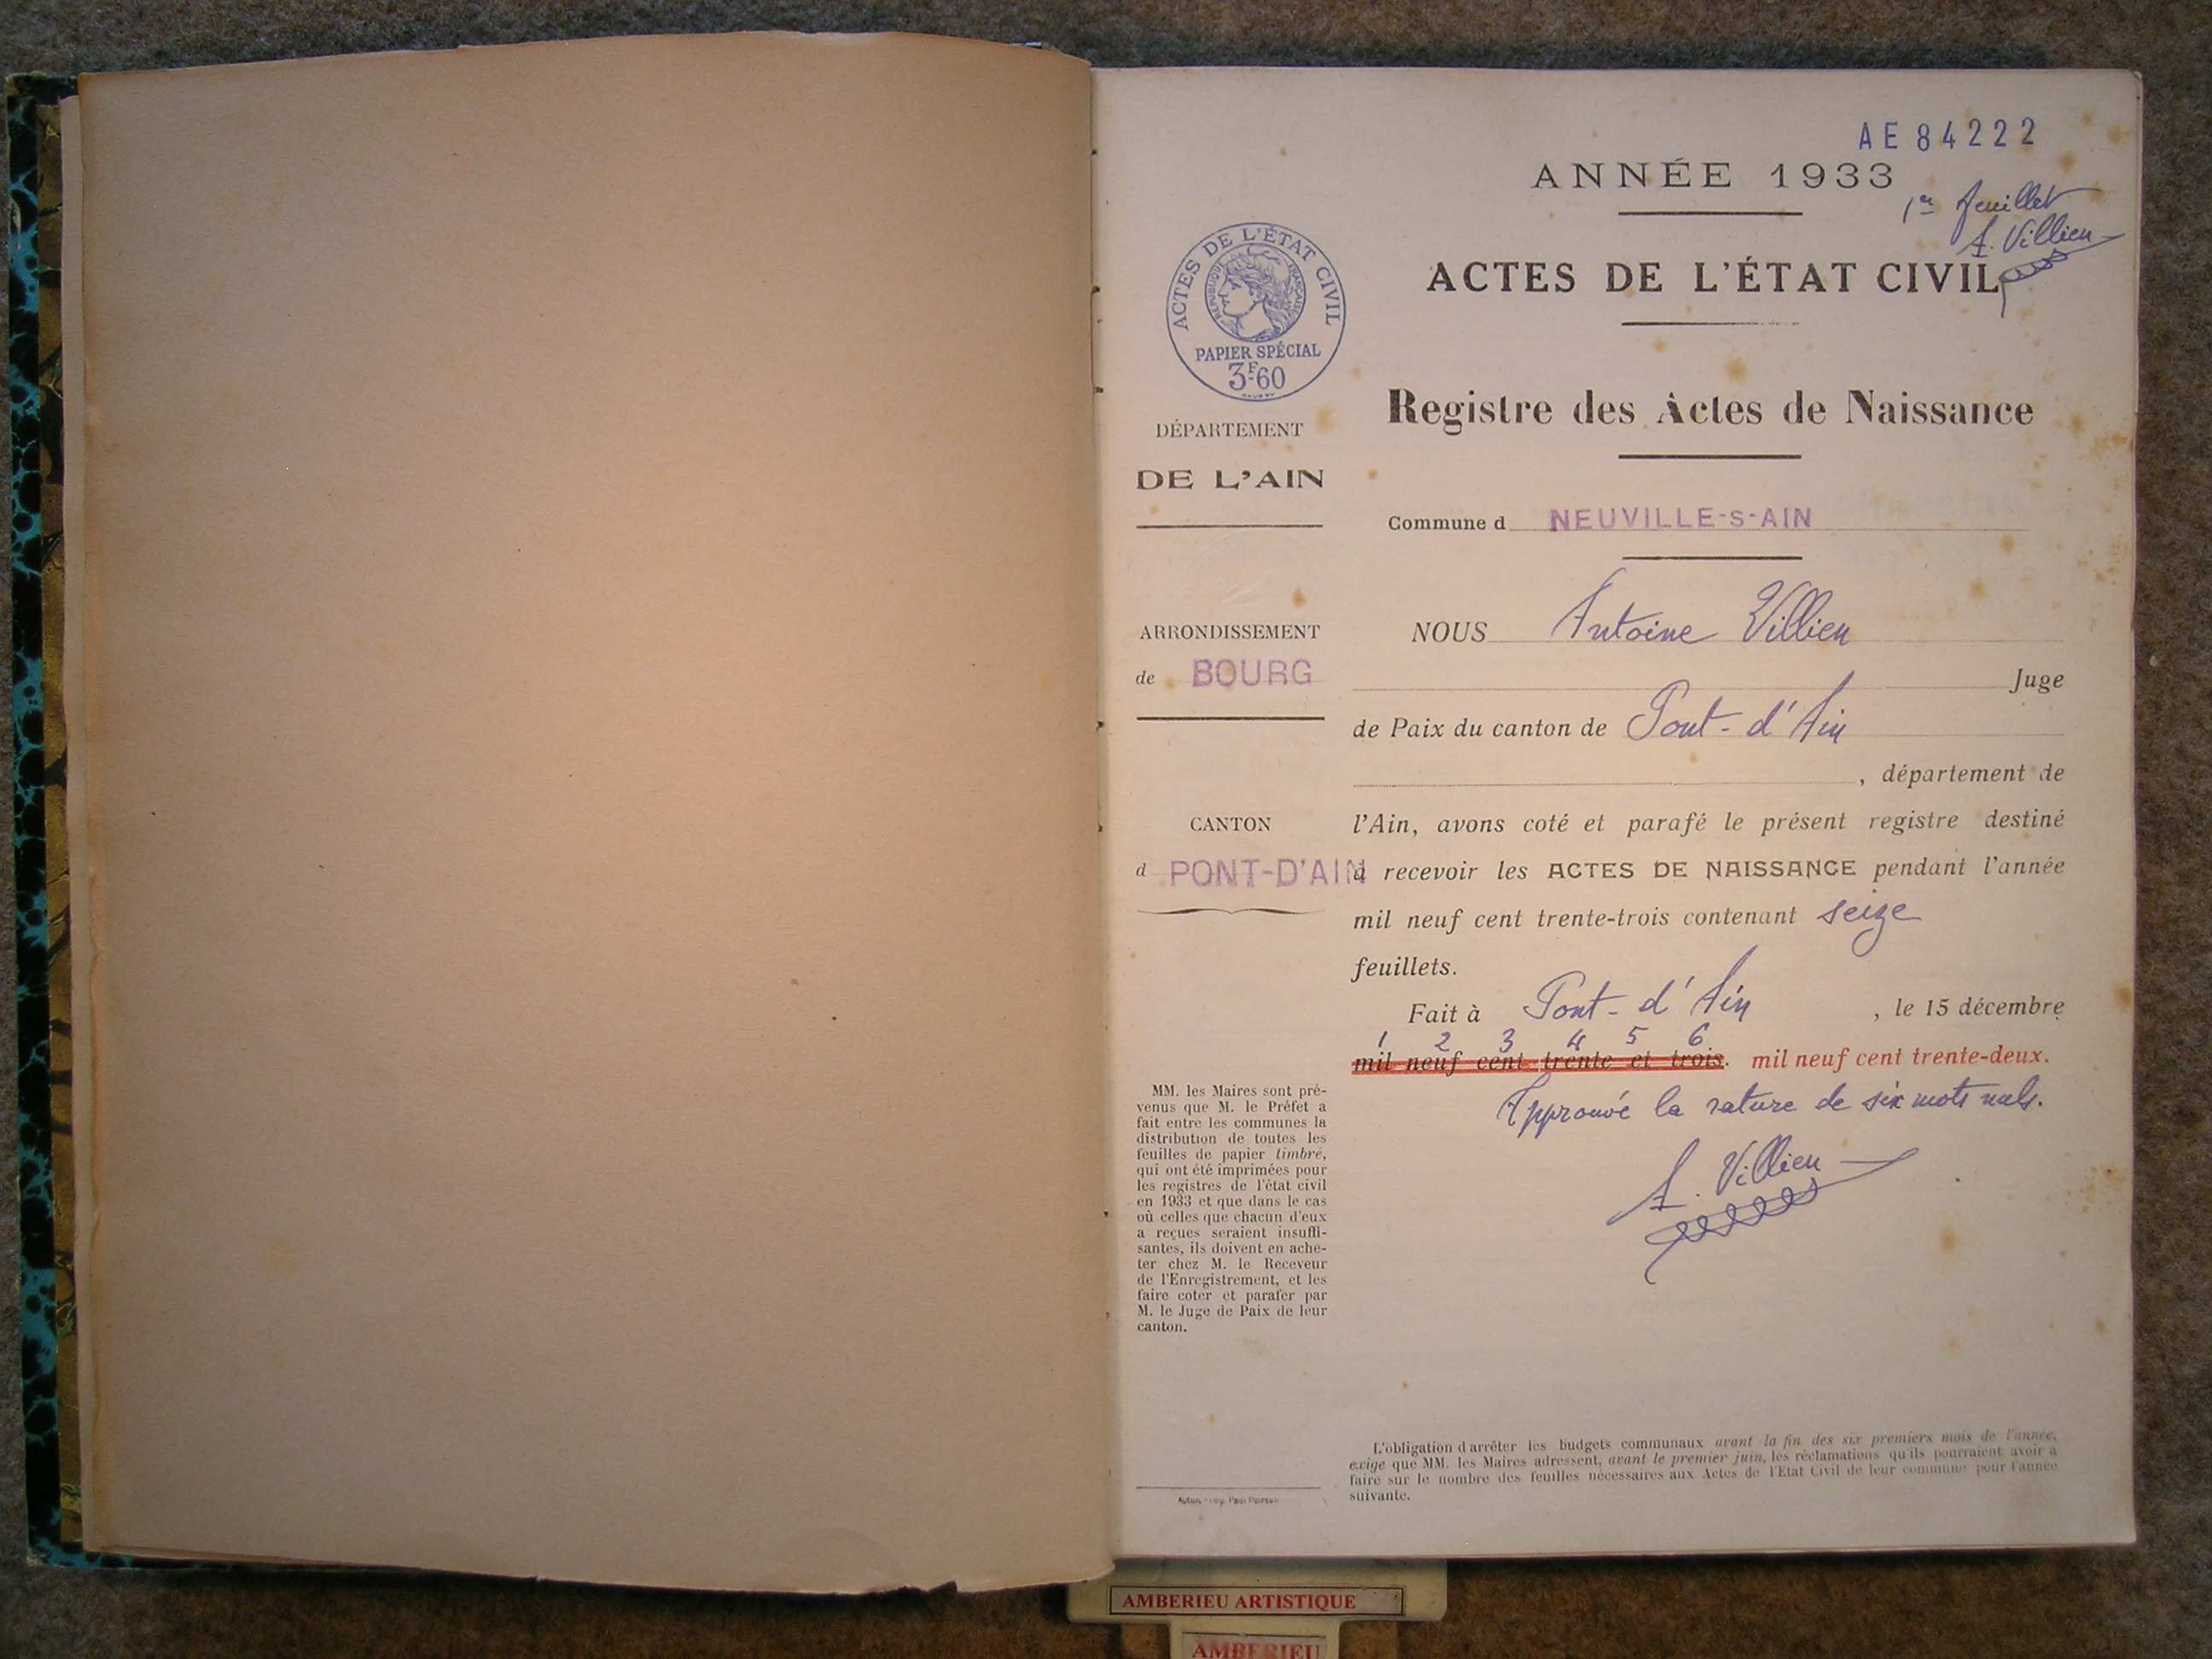 AE 84222
ANNÉE 1933
1er feuillet
A. Villien
ACTES DE L'ÉTAT CIVIL
ACTES DE L'ÉTAT CIVIL
RÉPUBLIQUE FRANÇAISE
PAPIER SPÉCIAL
3F60
DÉPARTEMENT
DE L'AIN
ARRONDISSEMENT
de BOURG
CANTON
d PONT-D'AIN
MM. les Maires sont pré-
venus que M. le Préfet a
fait entre les communes la
distribution de toutes les
feuilles de papier timbré,
qui ont été imprimées pour
les registres de l'état civil
en 1933 et que dans le cas
où celles que chacun d'eux
a reçues seraient insuffi-
santes, ils doivent en ache-
ter chez M. le Receveur
de l'Enregistrement, et les
faire coter et parafer par
M. le Juge de Paix de leur
canton.
Registre des Actes de Naissance
Commune d NEUVILLE-S-AIN
NOUS Antoine Villien
Juge
de Paix du canton de Pont-d'Ain
, département de
l'Ain, avons coté et parafé le présent registre destiné
à recevoir les ACTES DE NAISSANCE pendant l'année
mil neuf cent trente-trois contenant seize
feuillets.
Fait à Pont-d'Ain , le 15 décembre
1 2 3 4 5 6
mil neuf cent trente et trois. mil neuf cent trente-deux.
Approuvé la rature de six mots nuls.
A. Villien
L'obligation d'arrêter les budgets communaux avant la fin des six premiers mois de l'année,
exige que MM. les Maires adressent, avant le premier juin, les réclamations qu'ils pourraient avoir à
faire sur le nombre des feuilles nécessaires aux Actes de l'Etat Civil de leur commune pour l'année
suivante.
Autun, Imp. Paul
AMBERIEU ARTISTIQUE
AMBERIEU